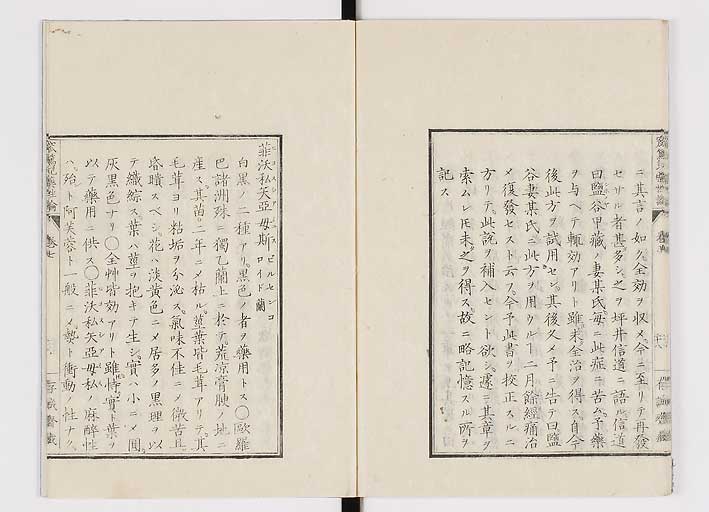 ニ其言ノ如ク全効ヲ収メ今ニ至リテ再發
セサル者甚多シ之ヲ坪井信道ニ語ル信道
曰鹽谷甲藏ノ妻某氏毎ニ此症ニ苦ム予藥
ヲ与ヘテ輙効アリト雖未全治ヲ得ス自今
後此方ヲ試用セン其後久メ予ニ告テ曰鹽
谷妻某氏ニ此方ヲ用ウル丁二月餘經痼治
メ復發セスト云フ今予此書ヲ校正スルニ
方リテ此說ヲ補入セント欲シ遂ニ其章ヲ
索ムレ𪜈未之ヲ得ス故ニ略記憶スル所ヲ
記ス
菲沃私矢亞母斯 ビルセンコロイド 蘭
白黒ノ二種アリ黒色ノ者ヲ藥用トス〇歐羅
巴諸洲殊ニ獨乙蘭上ニ於テ荒凉膏腴ノ地ニ
産ス其苗二年ニメ枯ル莖葉皆毛茸アリテ其
毛茸ヨリ粘垢ヲ分泌ス氣味不佳ニメ微苦且
昏瞶スベシ花ハ淡黄色ニメ居多ノ黒理ヲ以
テ織綜ス葉ハ莖ヲ抱キテ生シ實ハ小ニメ圓
灰黒色ナリ〇全艸皆効アリト雖特實ト葉ヲ
以テ藥用ニ供ス〇菲沃私矢亞母私ノ麻醉性
ハ殆ト阿芙蓉ト一般ニメ勢ト衝動ノ性ナク